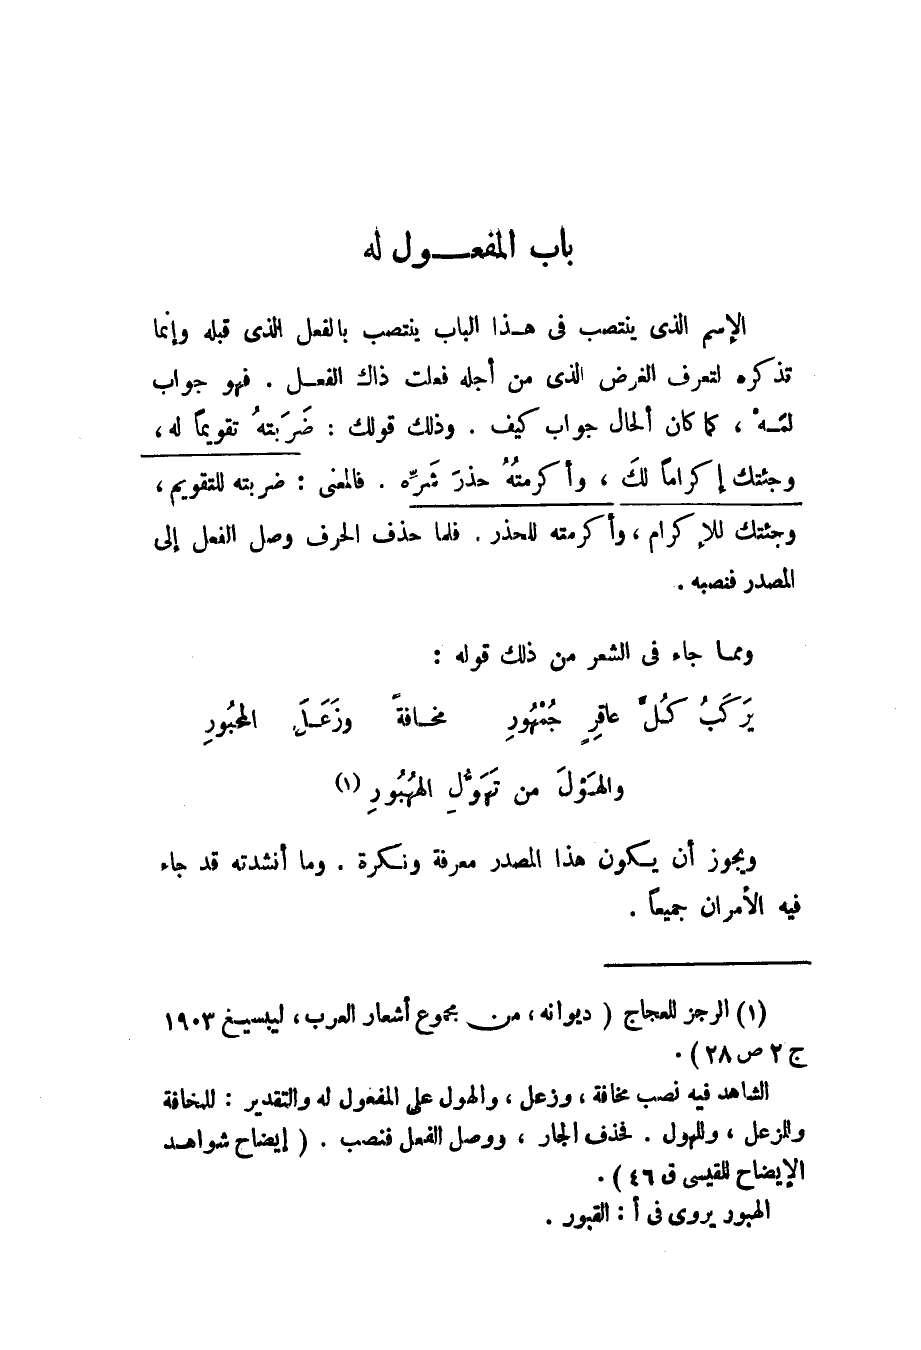 باب المفعــول له
الإسم الذى ينتصب فى هـذا الباب ينتصب بالفعل الذى قبله وإنما
تذكره لتعرف الغرض الذى من أجله فعلت ذاك الفعـل . فهو جواب
لمَـهْ ، كما كان ألحال جواب كيف . وذلك قولك : ضَرَبتهُ تقويماً له ،
وجئتك إكراماً لكَ ، وأكرمتُهُ حذرَ شَرِّه . فالمعنى : ضربته للتقويم ،
وجئتك للإكرام ، وأكرمته للحذر . فلما حذف الحرف وصل الفعل إلى
المصدر فنصبه .
ومما جاء فى الشعر من ذلك قوله :
يَركَبُ كُلَّ عاقِرٍ جُمْهُورِ مخـافةً وزَعَـلَ المحبُورِ
والهَوْلَ من تَهَوُّلِ الهُبُورِ (١)
ويجوز أن يكون هذا المصدر معرفة ونكرة . وما أنشدته قد جاء
فيه الأمران جميعاً .
(١) الرجز للعجاج ( ديوانه ، من مجموع أشعار العرب ، ليبسيغ ١٩٠٣
ج ٢ ص ٢٨ ) .
الشاهد فيه نصب مخافة ، وزعل ، والهول على المفعول له والتقدير : للمخافة
وللزعل ، وللهول . فحذف الجار ، ووصل الفعل فنصب . ( إيضاح شواهـد
الإيضاح للقيسى ق ٤٦ ) .
الهبور يروى فى أ : القبور .